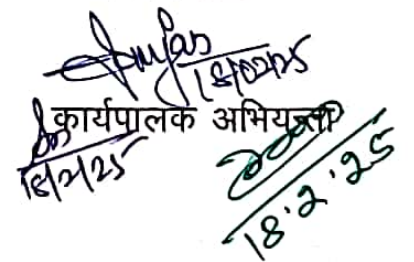 18/02/25
कार्यपालक अभियन्ता
18/2/25
18.2.25